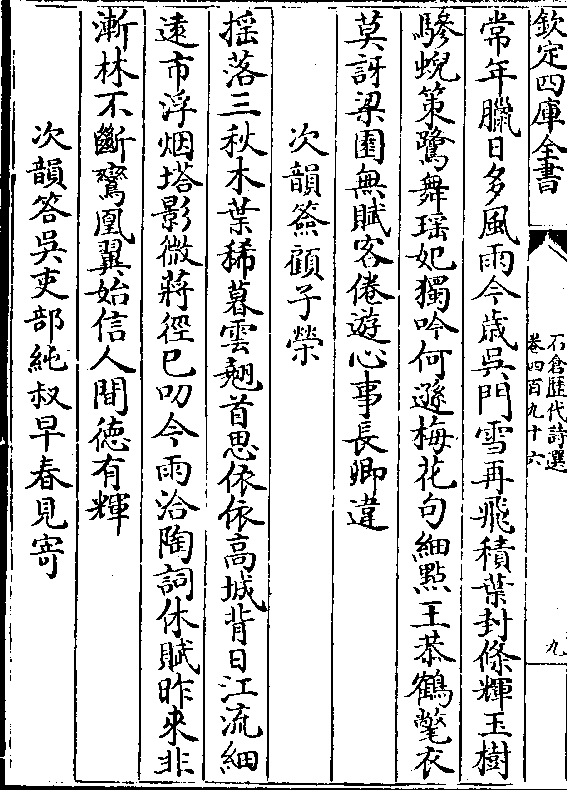 欽定四庫全書
石倉歷代詩選
卷四百九十六
九
常年臘日多風雨今歳呉門雪再飛積葉封條輝玉樹
驂蜺策鷺舞瑶妃獨吟何遜梅花句細點王恭鶴氅衣
莫訝梁園無賦客倦遊心事長卿違
次韻簽顧子榮
揺落三秋木葉稀暮雲翹首思依依高城背日江流細
逺市浮烟塔影微蔣徑已叨今雨洽陶詞休賦昨来非
漸林不斷鸞凰翼始信人間徳有輝
次韻答呉吏部純叔早春見寄